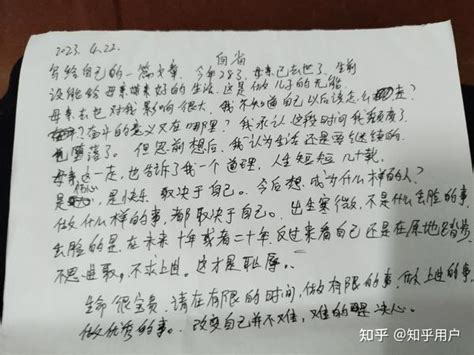 2023.4.22.
自省
写给自己的一篇文章。今年28了,母亲已去世了。生前
没能给母亲带来好的生活。这是做儿子的无能。
母亲去世对我影响很大。我不知道自己以后该怎么走?
奋斗的意义又在哪里?我承认这段时间我颓废了
堕落了。但思前想后。我认为生活还是要继续的.
母亲这一走,也告诉了我一个道理,人生短短几十载.
是伤心,是快乐 取决于自己。今后想成为什么样的人?
做什么样的事,都取决于自己。出生寒微,不是什么丢脸的事.
丢脸的是在未来十年或者二十年反过来看自己还是在原地踏步
不思进取,不求上进。这才是耻辱.
生命很宝贵.请在有限的时间,做有限的事.做上进的事.
做优秀的事。改变自己并不难,难的是决心。
知乎 @知乎用户